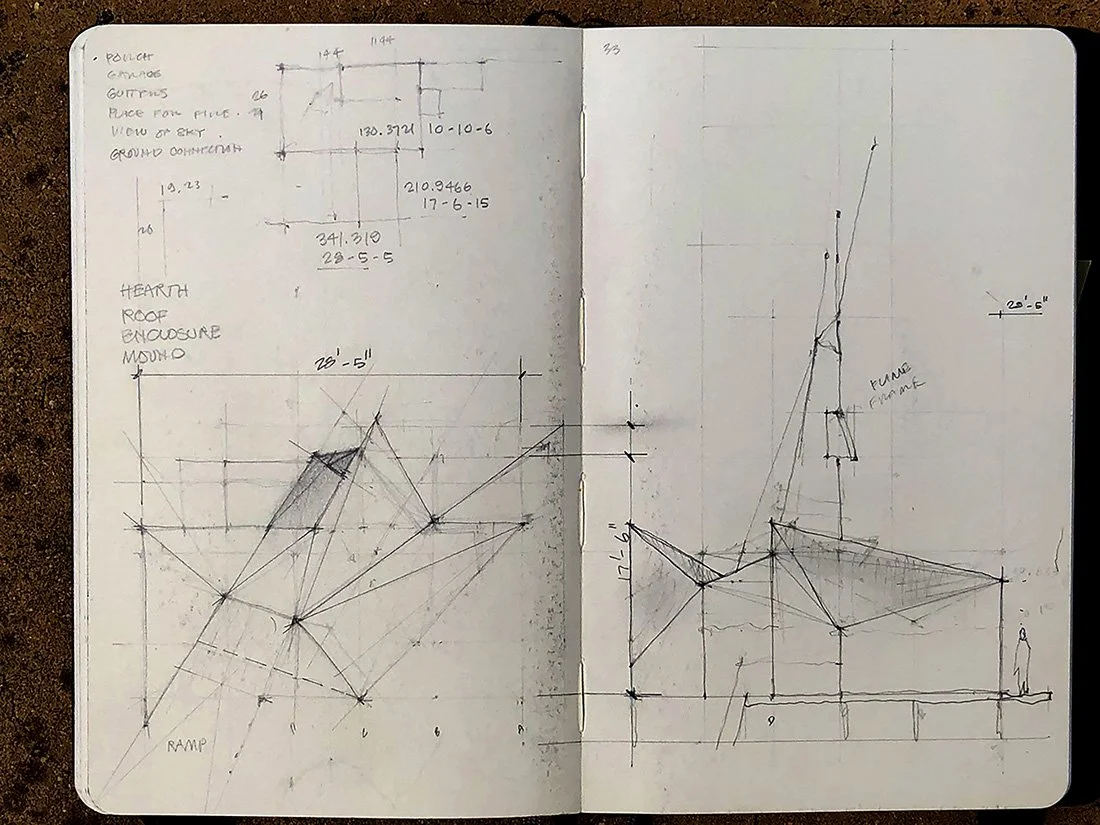 PORCH
GARAGE
GUTTERS
PLACE FOR FIRE.
VIEW OF SKY.
GROUND CONNECTION
144
1144
26
130.3721 10-10-6
19.23
26
210.9466
17-6-15
341.319
28-5-5
HEARTH
ROOF
ENCLOSURE
MOUND
28'-5"
RAMP
33
28'-5"
FRAME
17'-6"